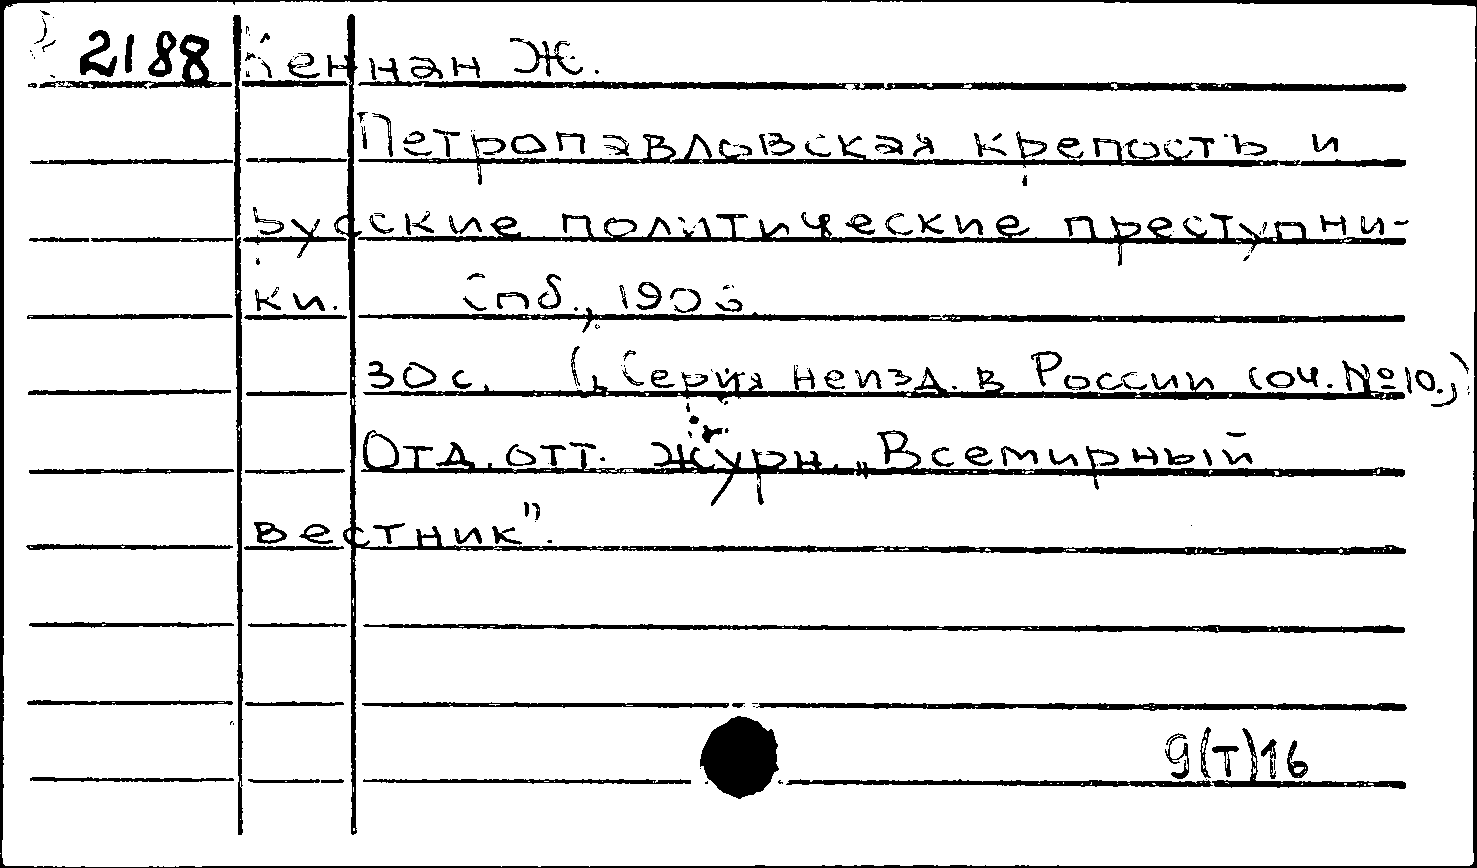 2188 Кеннан Ж.
Петропавловская крепость и
русские политические преступни-
ки. Спб., 1906.
30 с. („Серия неизд. в России соч. №10.„)
Отд. отт. журн. „Всемирный
вестник".
9(т)16